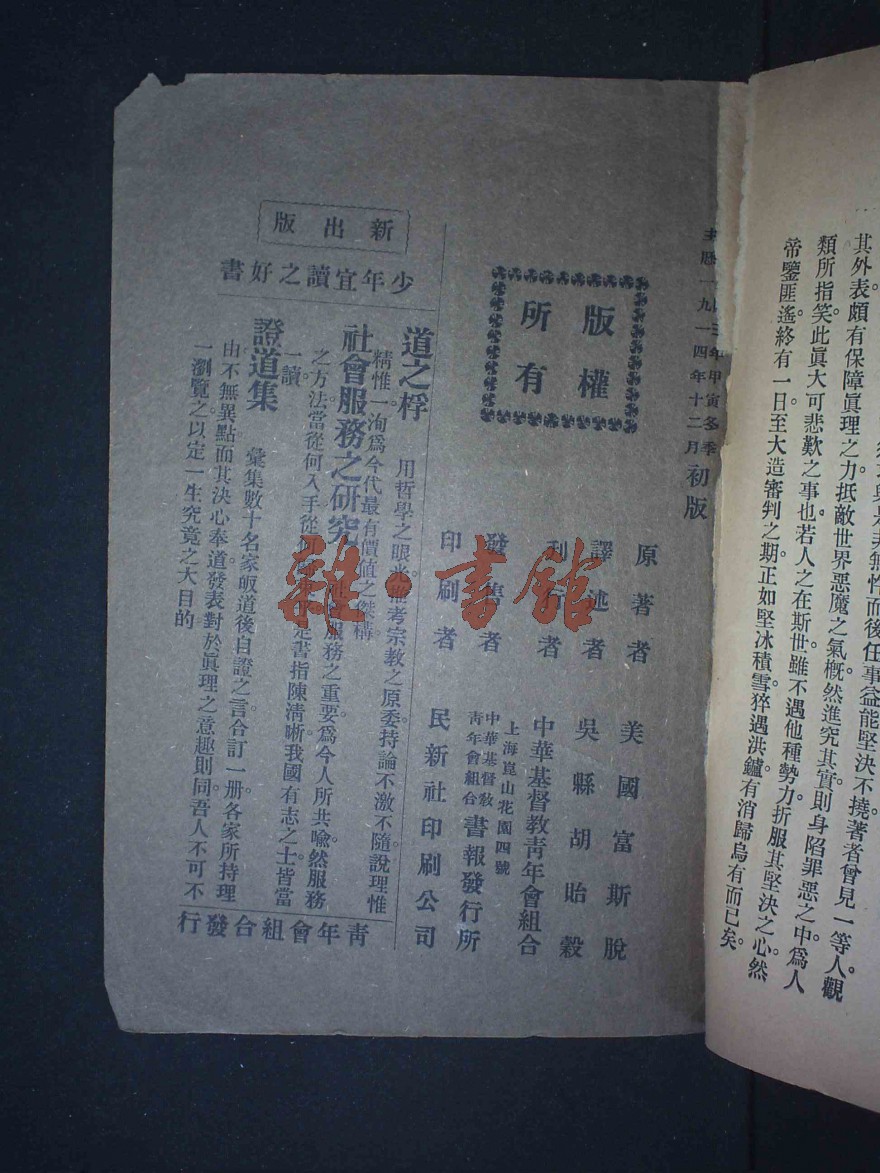 其外表頗有保障眞理之力抵敵世界惡魔之氣槪然進究其實則身陷罪惡之中爲人
類所指笑此眞大可悲歎之事也若人之在斯世雖不遇他種勢力折服其堅決之心然
帝鑒匪遙終有一日至大造審判之期正如堅冰積雪猝遇洪鑪有消歸烏有而已矣
主歷一九一四年十二月初版
年甲寅冬季
版權
所有
原著者 美國富斯脫
譯述者 吳縣胡貽穀
刊行者 中華基督敎靑年會組合
上海崑山花園四號
發售者 中華基督敎靑年會組合書報發行所
印刷者 民新社印刷公司
新出版
少年宜讀之好書
道之桴 用哲學之眼光推考宗敎之原委持論不激不隨說理惟
精惟一洵爲今代最有價值之傑構
社會服務之研究 社會服務之重要爲今人所共喩然服務
之方法當從何入手從是書指陳淸晰我國有志之士皆當
一讀
證道集 彙集數十名家皈道後自證之言合訂一册各家所持理
由不無異點而其決心奉道發表對於眞理之意趣則同吾人不可不
一瀏覽之以定一生究竟之大目的
靑年會組合發行
雜·書館